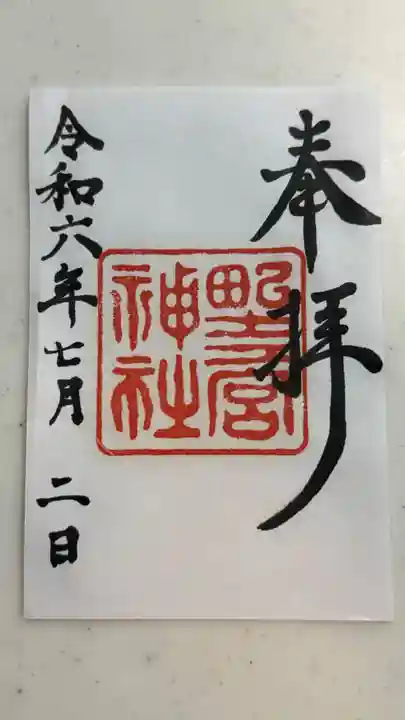 奉拝
野宮
神社
令和六年七月 二日